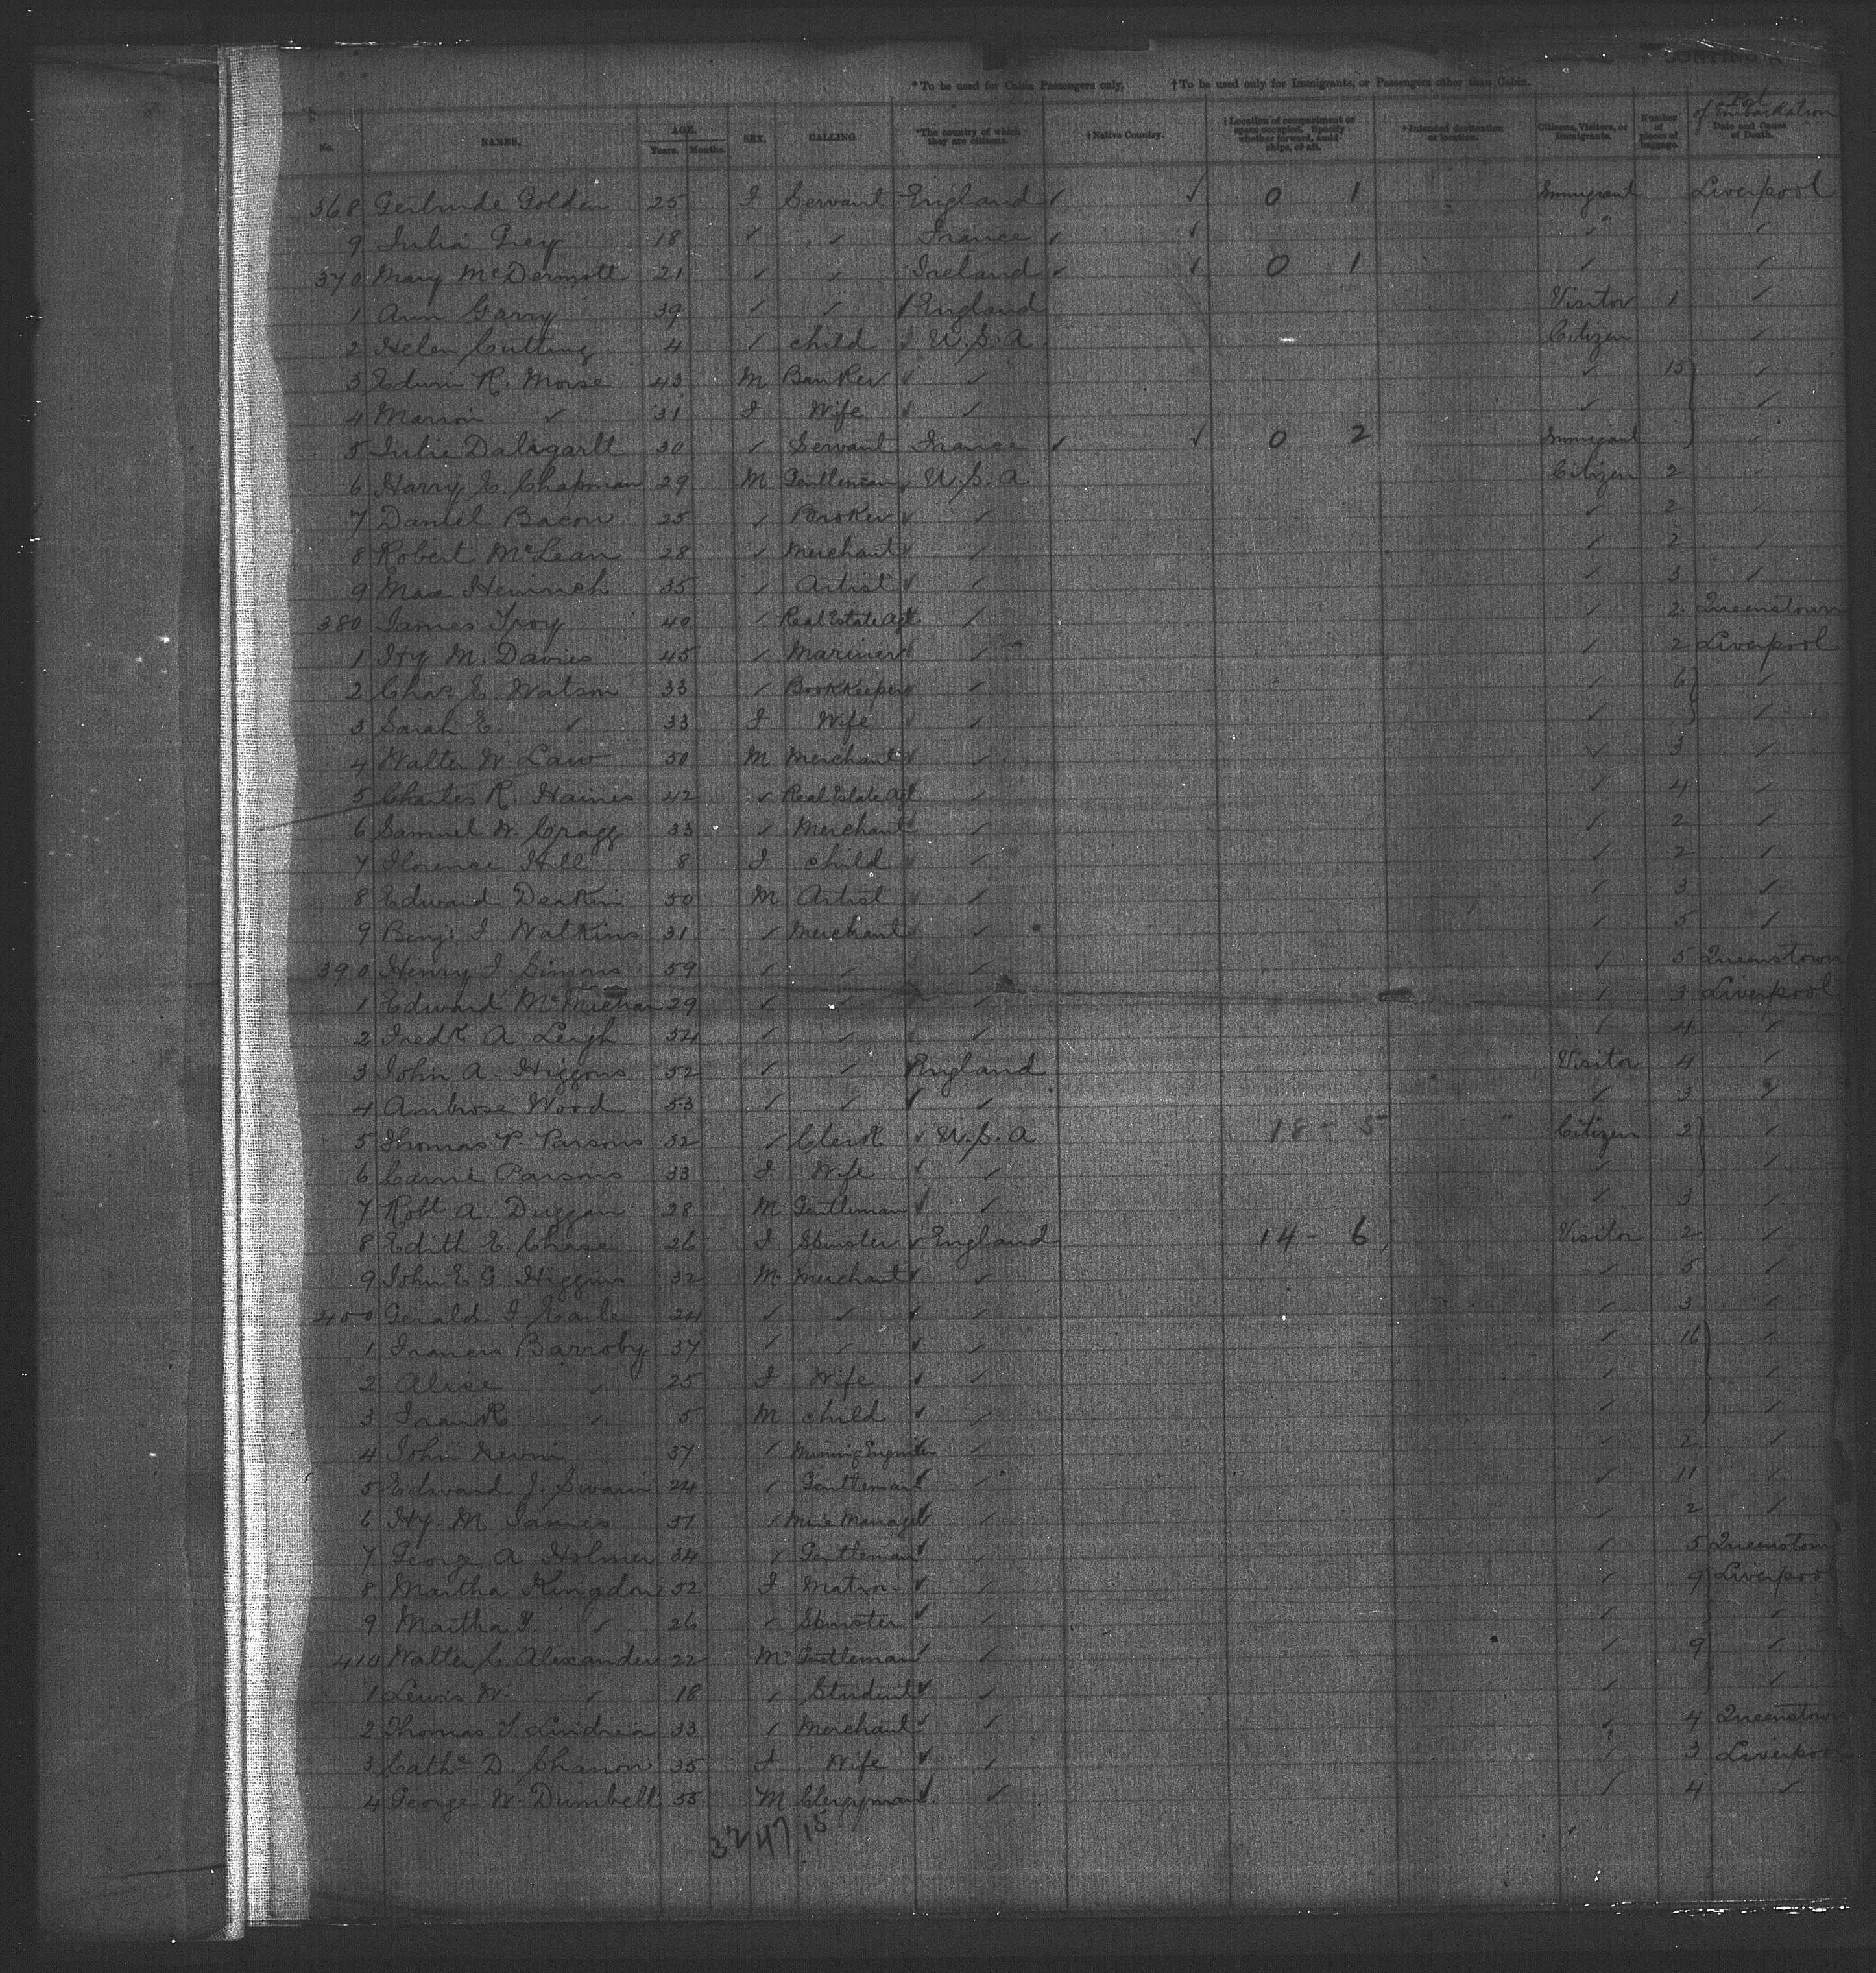 * To be used for Cabin Passengers only. † To be used only for Immigrants, or Passengers other than Cabin.
No. NAMES. AGE. Years. Months. SEX. CALLING *The country of which they are citizens. †Native Country. †Location of compartment or space occupied. Specify whether forward, amidships, or aft. †Intended destination or location. Citizens, Visitors, or Immigrants. Number of pieces of baggage. Port of Embarkation Date and Cause of Death.
368 Gertrude Golden 25 F Servant England ✓ ✓ 0 1 Immigrant Liverpool
9 Julia Grey 18 ✓ ✓ France ✓ ✓ ✓ ✓
370 Mary McDermott 21 ✓ ✓ Ireland ✓ ✓ 0 1 ✓ ✓
1 Ann Garry 39 ✓ ✓ ✓ England Visitor 1 ✓
2 Helen Cutting 4 ✓ child ✓ U.S.A Citizen ✓
3 Edwin R. Morse 43 M Banker ✓ ✓ ✓ 15 ✓
4 Marion ✓ 31 F Wife ✓ ✓ ✓ ✓
5 Julie 30 ✓ Servant France ✓ ✓ 0 2 Immigrant ✓
6 Harry E. Chapman 29 M Gentleman ✓ U.S.A Citizen 2 ✓
7 Daniel Bacon 25 ✓ Broker ✓ ✓ ✓ 2 ✓
8 Robert McLean 28 ✓ Merchant ✓ ✓ ✓ 2 ✓
9 Max Heinrich 35 ✓ Artist ✓ ✓ ✓ 3 ✓
380 James Troy 40 ✓ Real Estate Agt ✓ ✓ 2 Queenstown
1 Hy M. Davies 45 ✓ Mariner ✓ ✓ ✓ 2 Liverpool
2 Chas E. Watson 33 ✓ Bookkeeper ✓ ✓ 6 ✓
3 Sarah E. ✓ 33 F Wife ✓ ✓ ✓
4 Walter W. Law 50 M Merchant ✓ ✓ ✓ 3 ✓
5 Charles R. Haines 42 ✓ Real Estate Agt ✓ ✓ 4 ✓
6 Samuel W. Cragg 33 ✓ Merchant ✓ ✓ ✓ 2 ✓
7 Florence Hill 8 F child ✓ ✓ ✓ 2 ✓
8 Edward Deakin 50 M Artist ✓ ✓ ✓ 3 ✓
9 Benj. J. Watkins 31 ✓ Merchant ✓ ✓ ✓ 5 ✓
390 Henry J. Simons 59 ✓ ✓ ✓ ✓ 5 Queenstown
1 Edward 29 ✓ ✓ ✓ ✓ 3 Liverpool
2 Fredk A Leigh 54 ✓ ✓ ✓ ✓ 4 ✓
3 John A. Higgons 52 ✓ ✓ England Visitor 4 ✓
4 Ambrose Wood 53 ✓ ✓ ✓ ✓ ✓ 3 ✓
5 Thomas P. Parsons 32 ✓ Clerk ✓ U.S.A 18 - 5 Citizen 2 ✓
6 Carrie Parsons 33 F Wife ✓ ✓ ✓ ✓
7 Robt A. Duggan 28 M Gentleman ✓ ✓ ✓ 3 ✓
8 Edith E. Chase 26 F Spinster ✓ England 14 - 6 Visitor 2 ✓
9 John E G. Higgins 32 M Merchant ✓ ✓ ✓ 5 ✓
400 Gerald J. Earle 24 ✓ ✓ ✓ ✓ ✓ 3 ✓
1 Francis Barroby 37 ✓ ✓ ✓ ✓ ✓ 16 ✓
2 Alise ✓ 25 F Wife ✓ ✓ ✓ ✓
3 Frank ✓ 5 M child ✓ ✓ ✓ ✓
4 John 37 ✓ Mining Engineer ✓ ✓ 2 ✓
5 Edward J. Swain 24 ✓ Gentleman ✓ ✓ ✓ 11 ✓
6 Hy. M James ✓ Mine Manager ✓ ✓ 2 ✓
7 George A Holmer 34 ✓ Gentleman ✓ ✓ ✓ 5 Queenstown
8 Martha Kingdon 52 F Matron ✓ ✓ ✓ 9 Liverpool
9 Martha ✓ 26 ✓ Spinster ✓ ✓ ✓ ✓
410 Walter C. Alexander 22 M Gentleman ✓ ✓ ✓ 9 ✓
1 Lewis W. ✓ 18 ✓ Student ✓ ✓ ✓ ✓
2 Thomas 33 ✓ Merchant ✓ ✓ ✓ 4 Queenstown
3 Cathe D. Chanon 35 F Wife ✓ ✓ ✓ 3 Liverpool
4 George W. Dumbell 55 M Clergyman ✓ ✓ ✓ 4 ✓
32 47 15